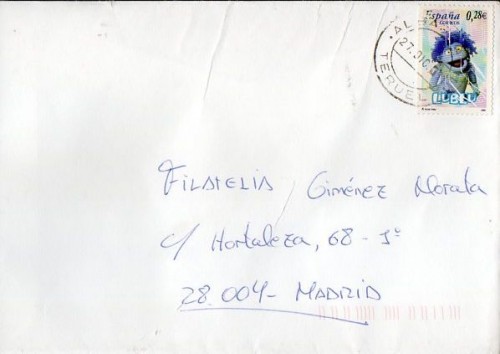 España 0,28€
CORREOS
27. DIC
TERUEL
LUBLÚ
FILATELIA Giménez Morata
c/ Hortaleza, 68 - 1º
28.004 - MADRID